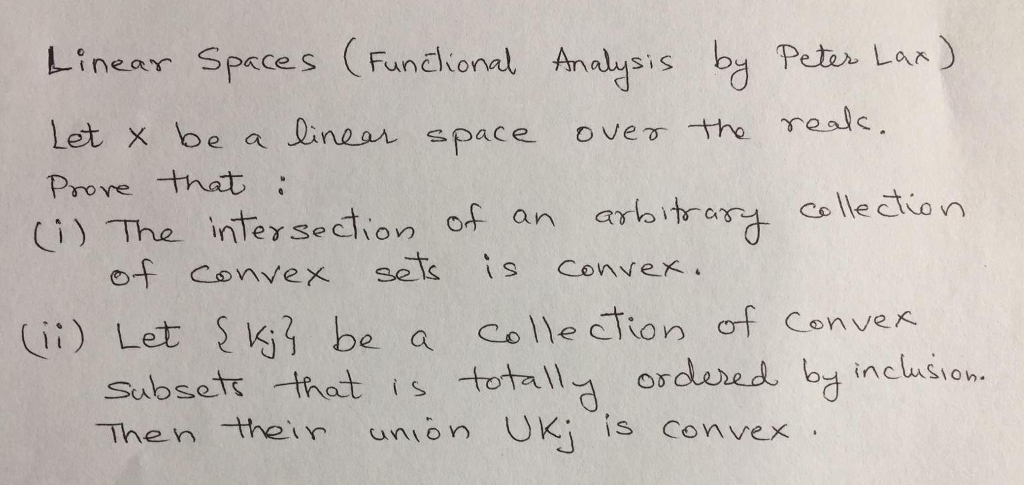 Linear Spaces (Functional Analysis by Peter Lax)
Let X be a linear space over the reals.
Prove that :
(i) The intersection of an arbitrary collection
of convex sets is convex.
(ii) Let {Kj} be a collection of convex
subsets that is totally ordered by inclusion.
Then their union UKj is convex.